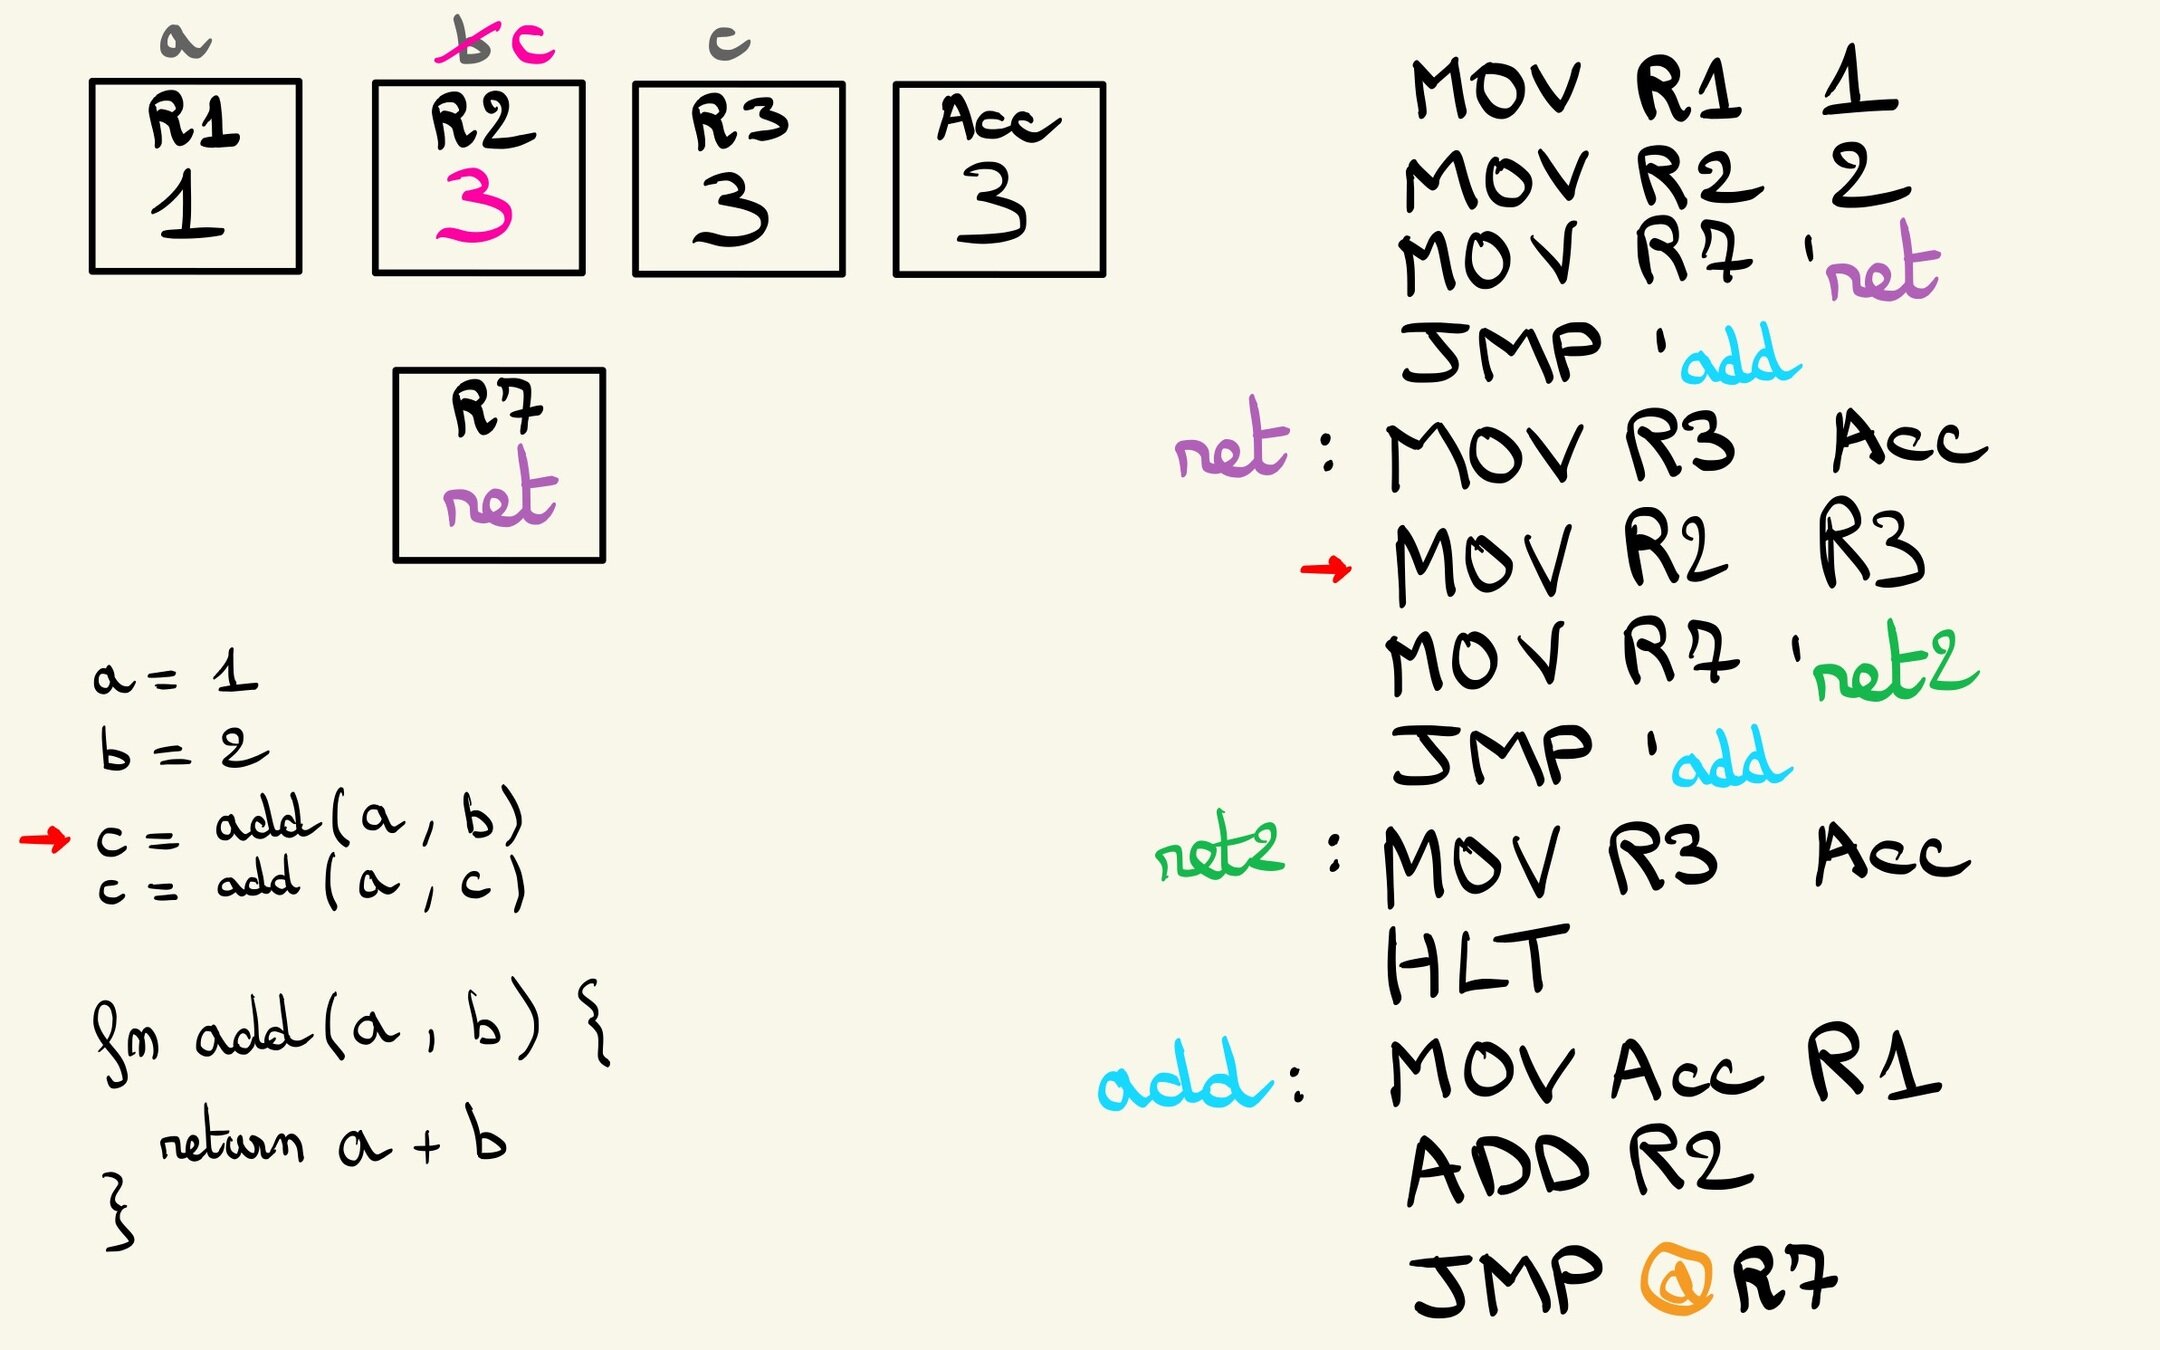 a b c c
R1 R2 R3 Acc
1 3 3 3
R7
ret
a = 1
b = 2
→ c = add(a, b)
c = add(a, c)
fn add(a, b) {
return a + b
}
MOV R1 1
MOV R2 2
MOV R7 'ret
JMP 'add
ret: MOV R3 Acc
→ MOV R2 R3
MOV R7 'ret2
JMP 'add
ret2: MOV R3 Acc
HLT
add: MOV Acc R1
ADD R2
JMP @R7